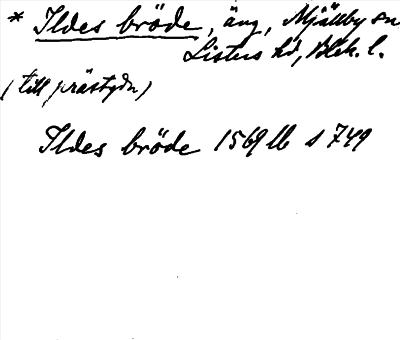 * Ildes bröde, äng, Mjällby sn
Listers hd, Blek. l.
(till prästgdn)
Ildes bröde 1569 lb s 749